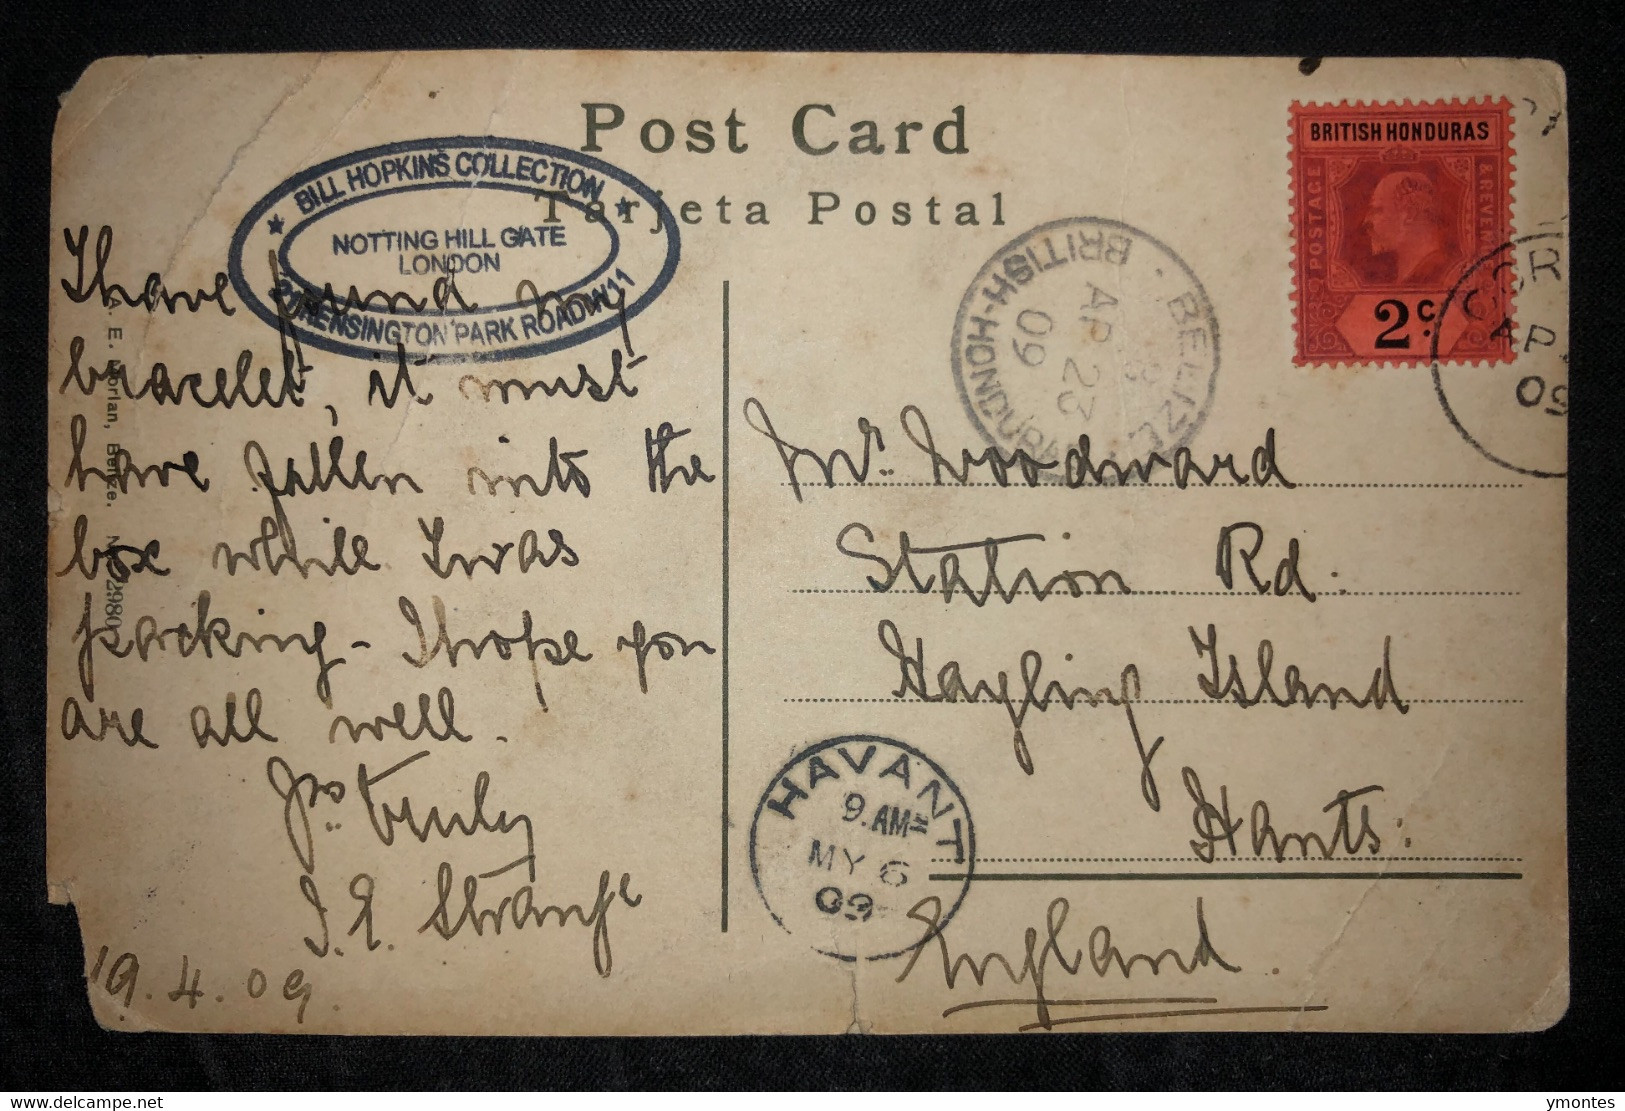 Post Card
Tarjeta Postal
★ BILL HOPKINS COLLECTION ★
NOTTING HILL GATE
LONDON
KENSINGTON PARK ROAD W11
BRITISH HONDURAS
POSTAGE
& REVENUE
2c.
BELIZE
BRITISH-HONDURAS
AP 23
09
COR
AP
09
I have found my
bracelet, it must
have fallen into the
box while I was
packing - I hope you
are all well.
Yrs. truly
J. E. Strange
19.4.09.
A. E. Morlan, Belize. No. 2980
Mr. Woodward
Station Rd.
Hayling Island
Hants:
England.
HAVANT
9.AM
MY 6
09
ymontes